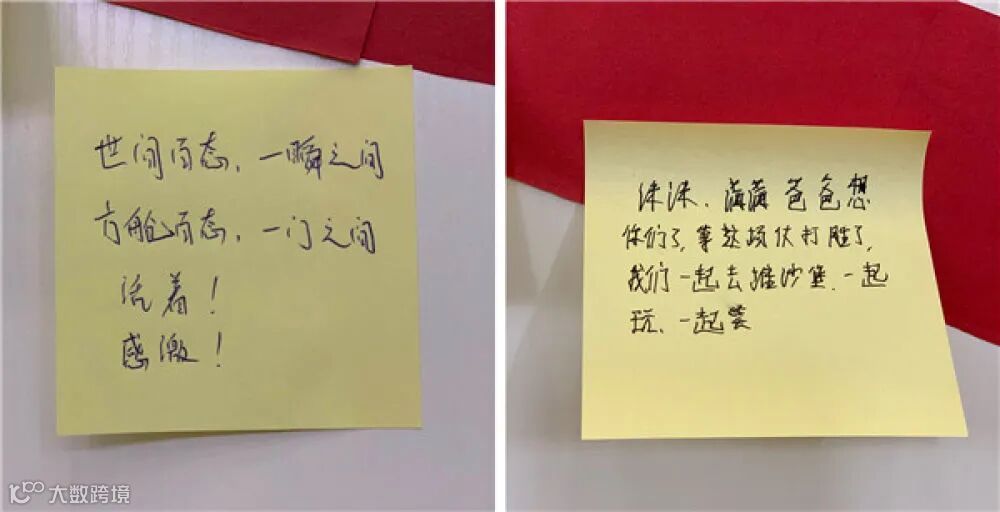 世间百态，一瞬之间
方舱百态，一门之间
活着！
感激！
沫沫、满满爸爸想
你们了，等这场仗打胜了，
我们一起去堆沙堡、一起
玩、一起笑
大数跨境